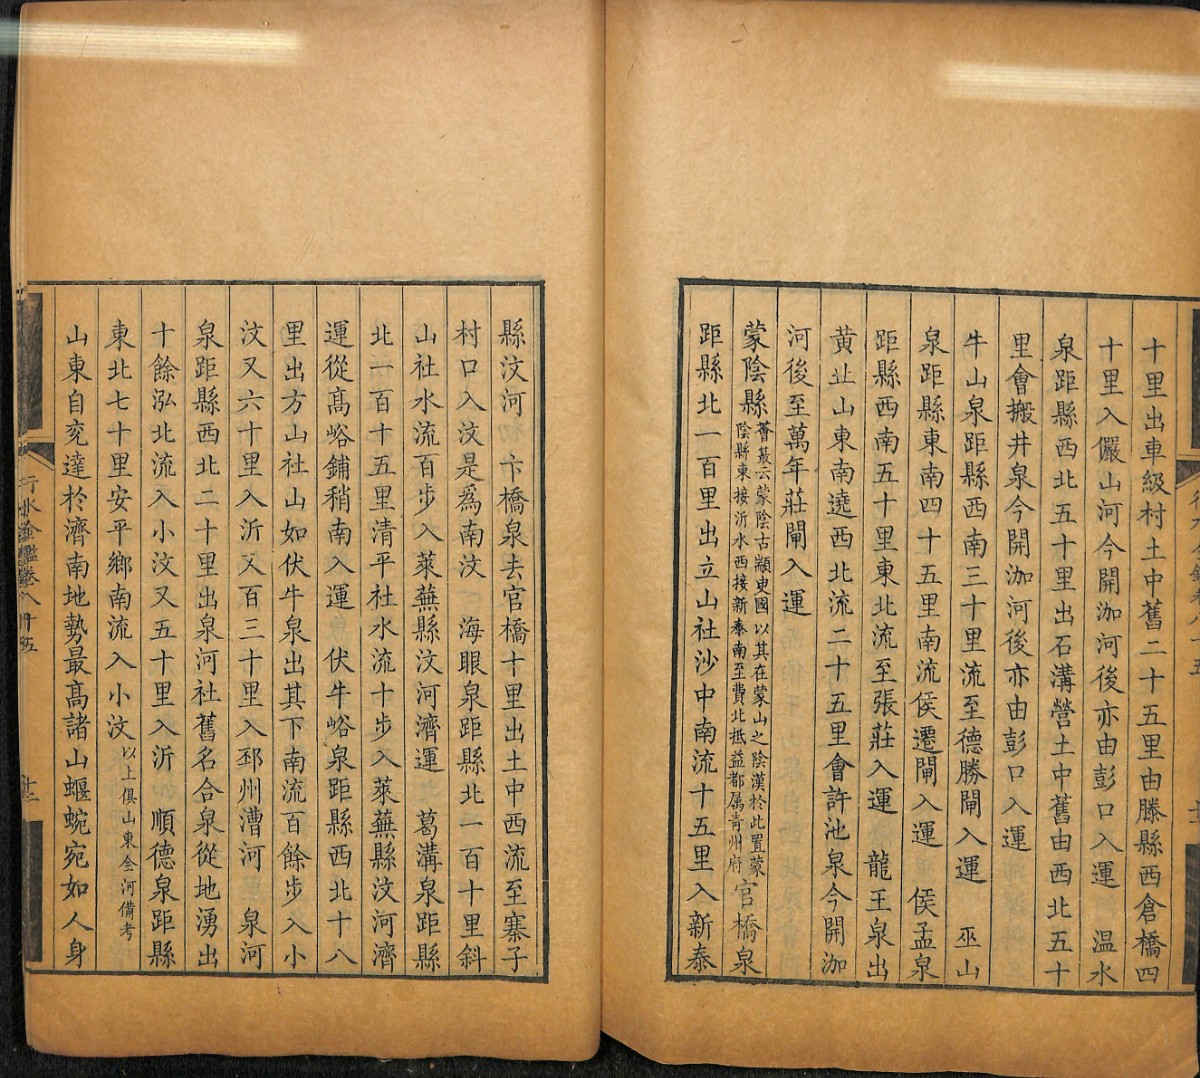 十里出車級村土中舊二十五里由滕縣西倉橋四
十里入儼山河今開泇河後亦由彭口入運　溫水
泉距縣西北五十里出石溝營土中舊由西北五十
里會搬井泉今開泇河後亦由彭口入運
牛山泉距縣西南三十里流至德勝閘入運　巫山
泉距縣東南四十五里南流侯遷閘入運　侯孟泉
距縣西南五十里東北流至張莊入運　龍王泉出
黄㐀山東南遶西北流二十五里會許池泉今開泇
河後至萬年莊閘入運
蒙陰縣薈蕞云蒙陰古顓臾國以其在蒙山之陰漢於此置蒙
陰縣東接沂水西接新泰南至費北抵益都属青州府官橋泉
距縣北一百里出立山社沙中南流十五里入新泰
縣汶河　卞橋泉去官橋十里出土中西流至寨子
村口入汶是爲南汶　海眼泉距縣北一百十里斜
山社水流百步入萊蕪縣汶河濟運　葛溝泉距縣
北一百十五里清平社水流十步入萊蕪縣汶河濟
運從髙峪鋪稍南入運　伏牛峪泉距縣西北十八
里出方山社山如伏牛泉出其下南流百餘步入小
汶又六十里入沂又百三十里入邳州漕河　泉河
泉距縣西北二十里出泉河社舊名合泉從地湧出
十餘泓北流入小汶又五十里入沂　順德泉距縣
東北七十里安平鄉南流入小汶以上俱山東全河備考
山東自兗達於濟南地勢最髙諸山蝘蜿宛如人身
行水金鑑卷八十五